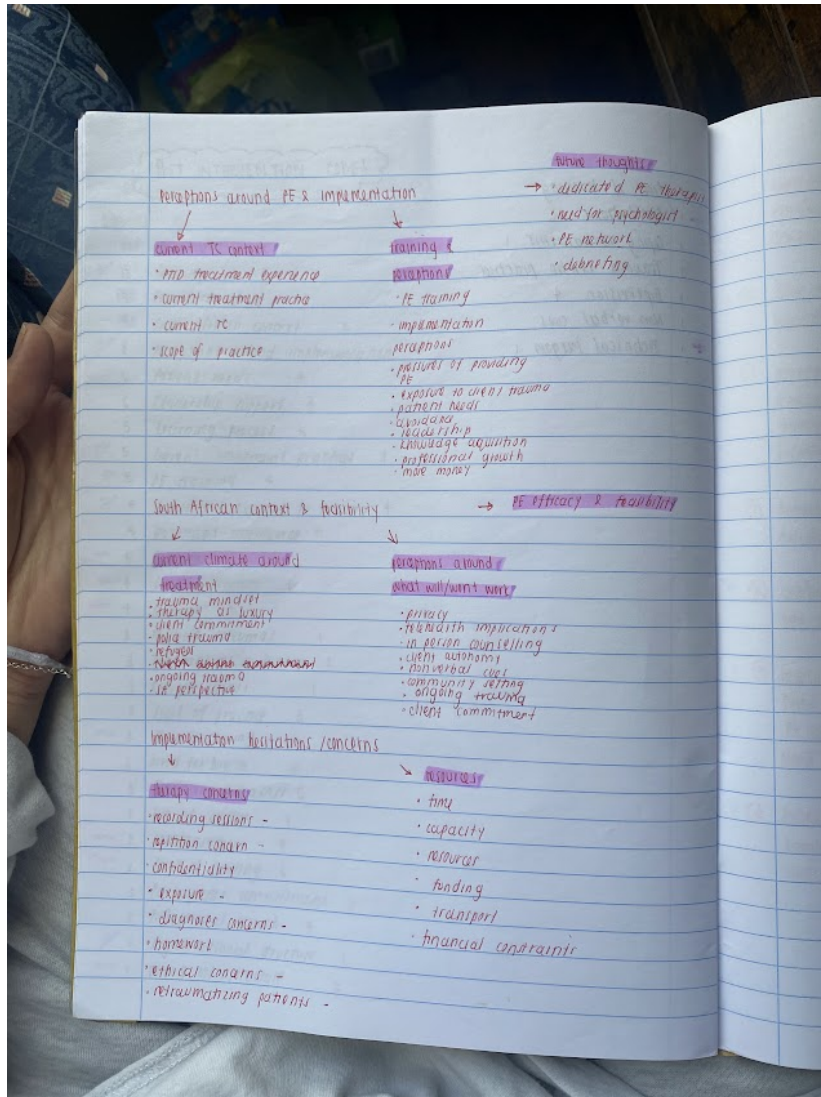 Perceptions around PE & implementation
current TC context
• PTSD treatment experience
• current treatment practice
• current TC
• scope of practice
training &
perceptions
• PE training
• implementation
perceptions
• pressures of providing
PE
• exposure to client trauma
• patient needs
• avoidance
• leadership
• knowledge aquisition
• professional growth
• more money
future thoughts
→ • dedicated PE therapist
• need for psychologist
• PE network
• debriefing
South African context & feasibility
→ PE efficacy & feasibility
current climate around
treatment
• trauma mindset
• therapy as luxury
• client commitment
• police trauma
• refugees
• ongoing trauma
• SA perspective
perceptions around
what will/wont work
• privacy
• telehealth implications
• in person counselling
• client autonomy
• nonverbal cues
• community setting
• ongoing trauma
• client commitment
Implementation hesitations /concerns
therapy concerns
• recording sessions -
• repitition concern -
• confidentiality
• exposure -
• diagnoses concerns -
• homework
• ethical concerns -
• retraumatizing patients -
resources
• time
• capacity
• resources
• funding
• transport
• financial constraints